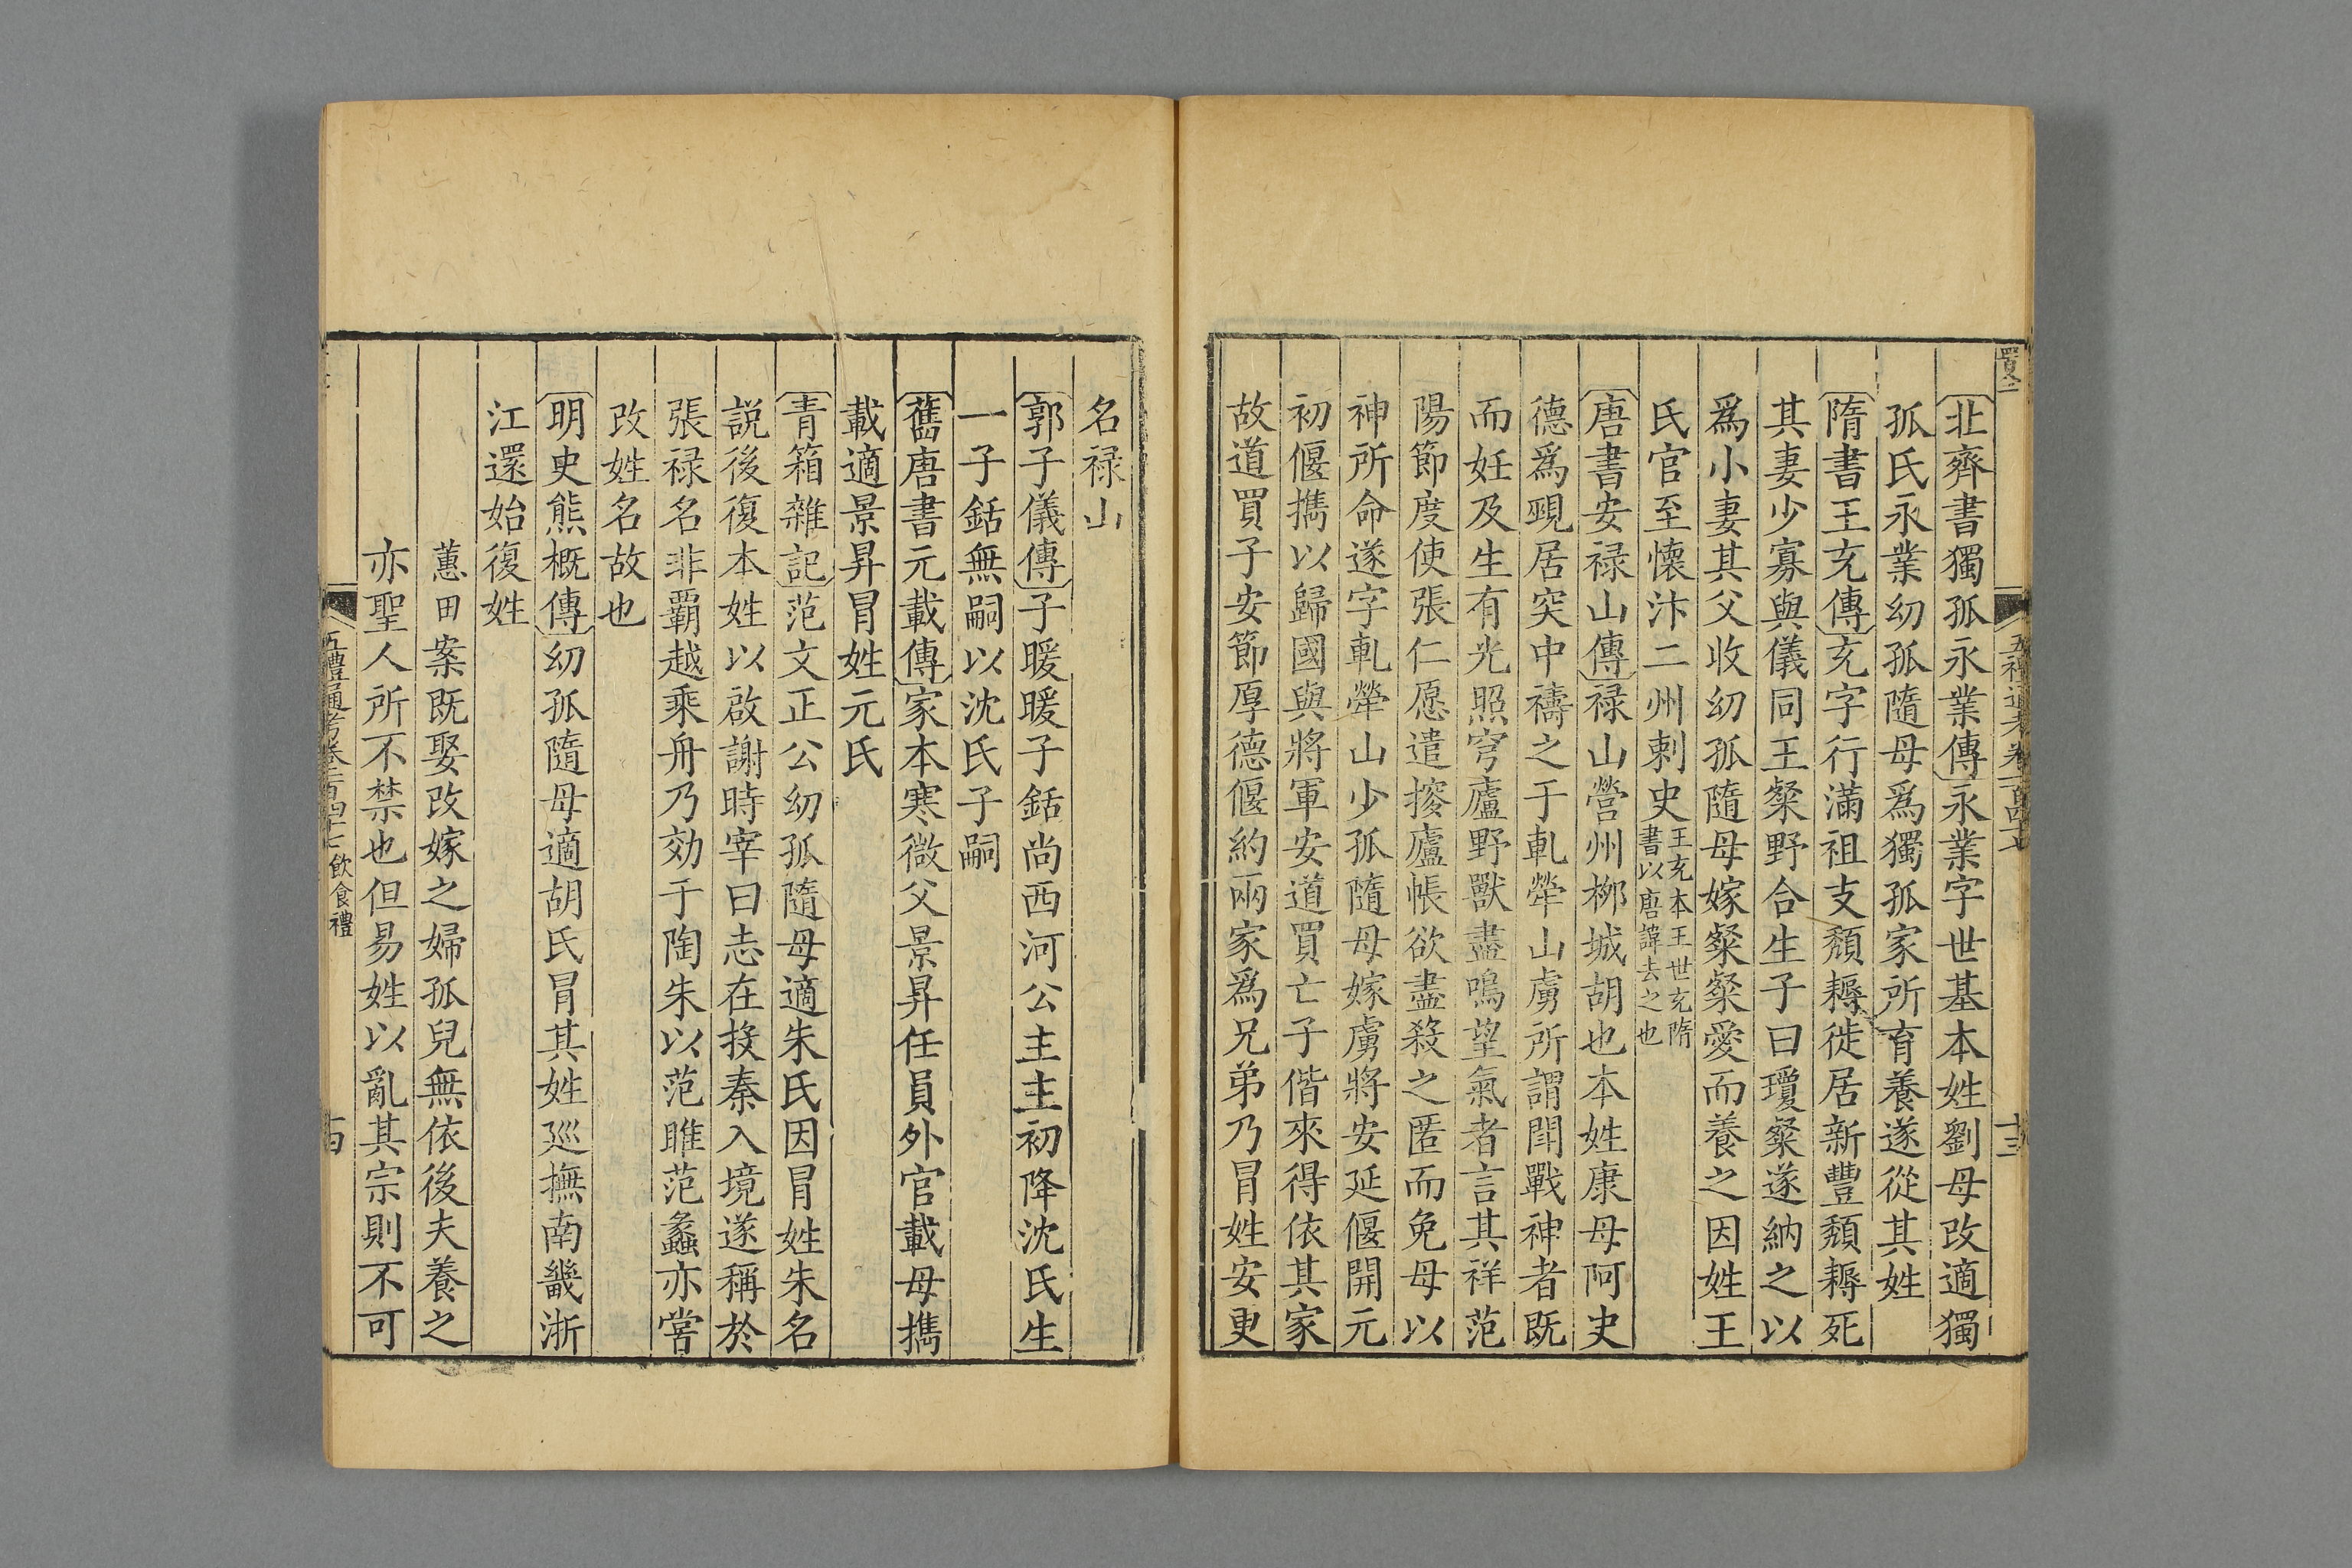 北齊書獨孤永業傳永業字世基本姓劉母改適獨
孤氏永業幼孤隨母爲獨孤家所育養遂從其姓
隋書王充傳充字行滿祖支頹耨徙居新豐頹耨死
其妻少寡與儀同王粲野合生子曰瓊粲遂納之以
爲小妻其父收幼孤隨母嫁粲粲愛而養之因姓王
氏官至懷汴二州刺史王充本王世充隋書以唐諱去之也
唐書安祿山傳祿山營州柳城胡也本姓康母阿史
德爲覡居突中禱之于軋犖山虜所謂鬭戰神者既
而妊及生有光照穹廬野獸盡鳴望氣者言其祥范
陽節度使張仁愿遣搜廬帳欲盡殺之匿而免母以
神所命遂字軋犖山少孤隨母嫁虜將安延偃開元
初偃攜以歸國與將軍安道買亡子偕來得依其家
故道買子安節厚德偃約兩家爲兄弟乃冒姓安更
五禮通考卷二百四十七
十三
名祿山
郭子儀傳子曖曖子銛尚西河公主主初降沈氏生
一子銛無嗣以沈氏子嗣
舊唐書元載傳家本寒微父景昇任員外官載母攜
載適景昇冒姓元氏
青箱雜記范文正公幼孤隨母適朱氏因冒姓朱名
説後復本姓以啟謝時宰曰志在投秦入境遂稱於
張祿名非霸越乘舟乃効于陶朱以范雎范蠡亦嘗
改姓名故也
明史熊概傳幼孤隨母適胡氏冒其姓巡撫南畿浙
江還始復姓
蕙田案既娶改嫁之婦孤兒無依後夫養之
亦聖人所不禁也但易姓以亂其宗則不可
五禮通考卷二百四十七 飲食禮
十四